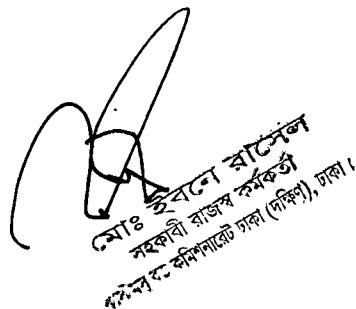 মোঃ ইবনে রাসেল
সহকারী রাজস্ব কর্মকর্তা
কমিশনারেট ঢাকা (দক্ষিণ), ঢাকা।